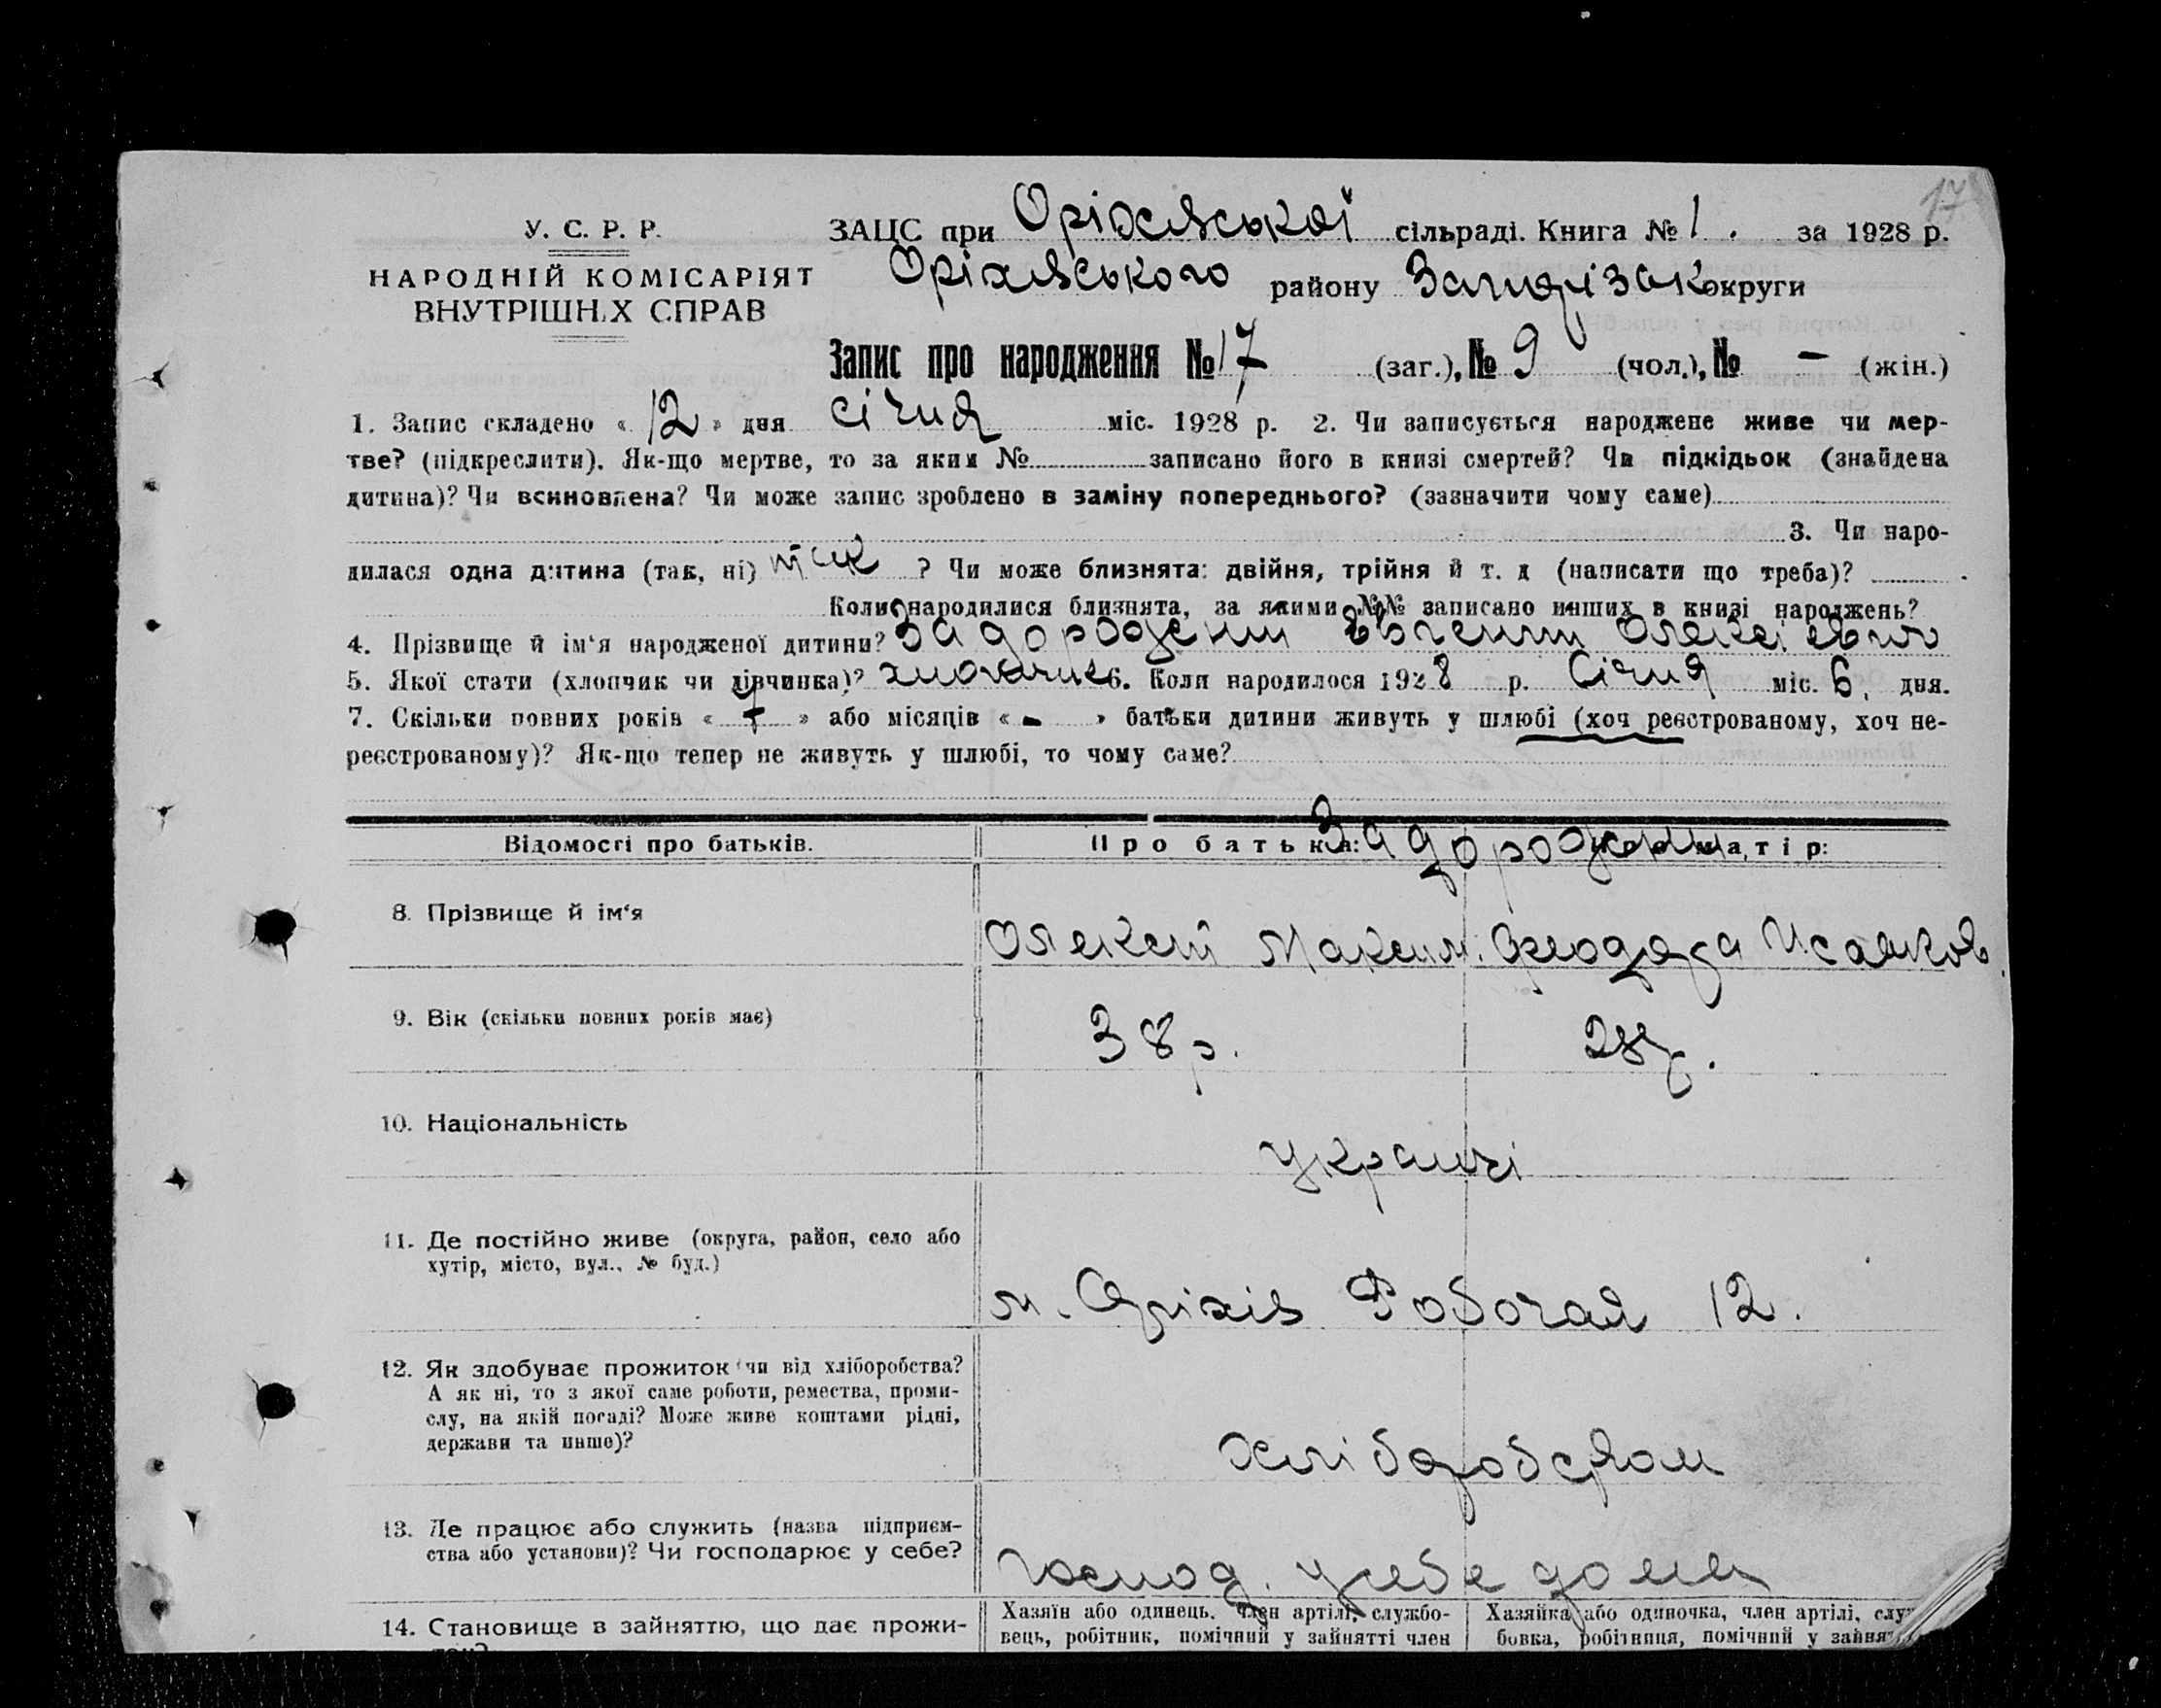 17
У. С. Р. Р.
НАРОДНІЙ КОМІСАРІЯТ
ВНУТРІШНІХ СПРАВ
ЗАЦС при Оріхівської сільраді. Книга № 1. за 1928 р.
Оріхівського району Запоріжк округи
Запис про народження № 17 (заг.), № 9 (чол.), № – (жін.)
1. Запис складено « 12 » дня січня міс. 1928 р. 2. Чи записується народжене живе чи мер-
тве? (підкреслити). Як-що мертве, то за яким № записано його в книзі смертей? Чи підкідьок (знайдена
дитина)? Чи всиновлена? Чи може запис зроблено в заміну попереднього? (зазначити чому саме)
3. Чи наро-
дилася одна дитина (так, ні) так ? Чи може близнята: двійня, трійня й т. д (написати що треба)?
Коли народилися близнята, за якими №№ записано инших в книзі народжень?
4. Прізвище й ім‘я народженої дитини? Задорожний Євгеній Олексієвич
5. Якої стати (хлопчик чи дівчинка)? хлопчик 6. Коли народилося 1928 р. Січня міс. 6. дня.
7. Скільки повних років « 7 » або місяців « – » батьки дитини живуть у шлюбі (хоч реєстрованому, хоч не-
реєстрованому)? Як-що тепер не живуть у шлюбі, то чому саме?
Відомості про батьків. Про батька: Про матір:
Задорожні
8. Прізвище й ім‘я Олексій Максим. Феодора Исаков.
9. Вік (скільки повних років має) 38 р. 28 р.
10. Національність українці
11. Де постійно живе (округа, район, село або
хутір, місто, вул., № буд.)
м. Оріхів Робочая 12.
12. Як здобуває прожиток чи від хліборобства?
А як ні, то з якої саме роботи, ремества, проми-
слу, на якій посаді? Може живе коштами рідні,
держави та инше)?
хліборобством
13. Де працює або служить (назва підприєм-
ства або установи)? Чи господарює у себе?
Господ. у себе дома
14. Становище в зайняттю, що дає прожи-
Хазяїн або одинець. член артілі, службо-
вець, робітник, помічний у зайнятті член
Хазяйка або одиночка, член артілі, слу
бовка, робітниця, помічний у зайня